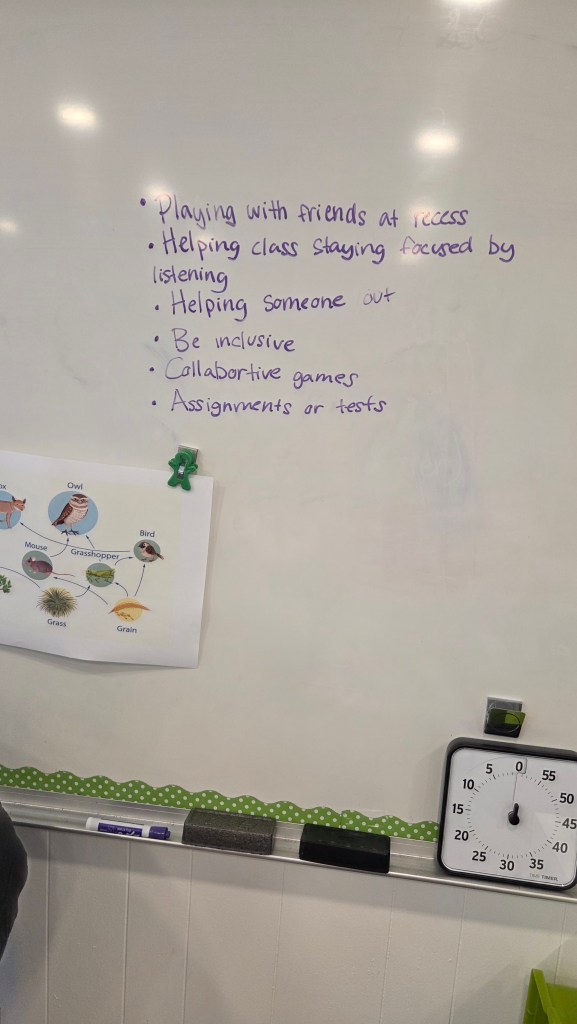 • Playing with friends at recess
• Helping class staying focused by
listening
• Helping someone out
• Be inclusive
• Collabortive games
• Assignments or tests
ox
Owl
Bird
Mouse
Grasshopper
Grass
Grain
0
5
55
10
50
15
45
20
40
25
30
35